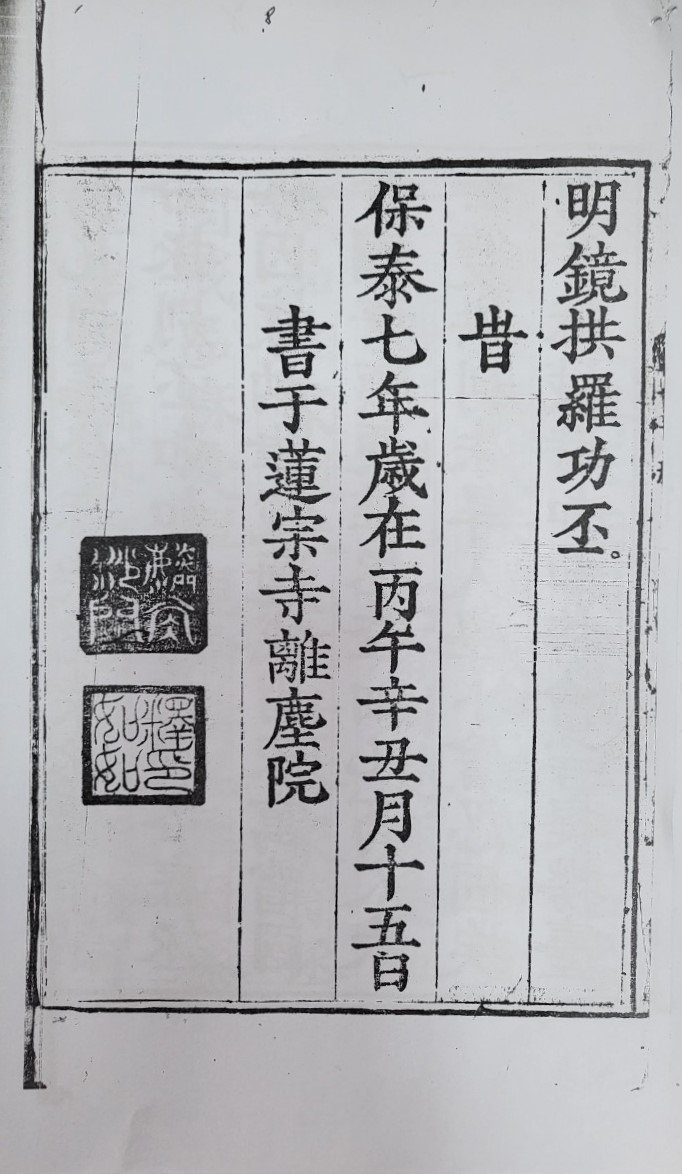 明鏡拱羅功丕。
旹
保泰七年歲在丙午辛丑月十五日
書于蓮宗寺離塵院
沙門
釋印如如